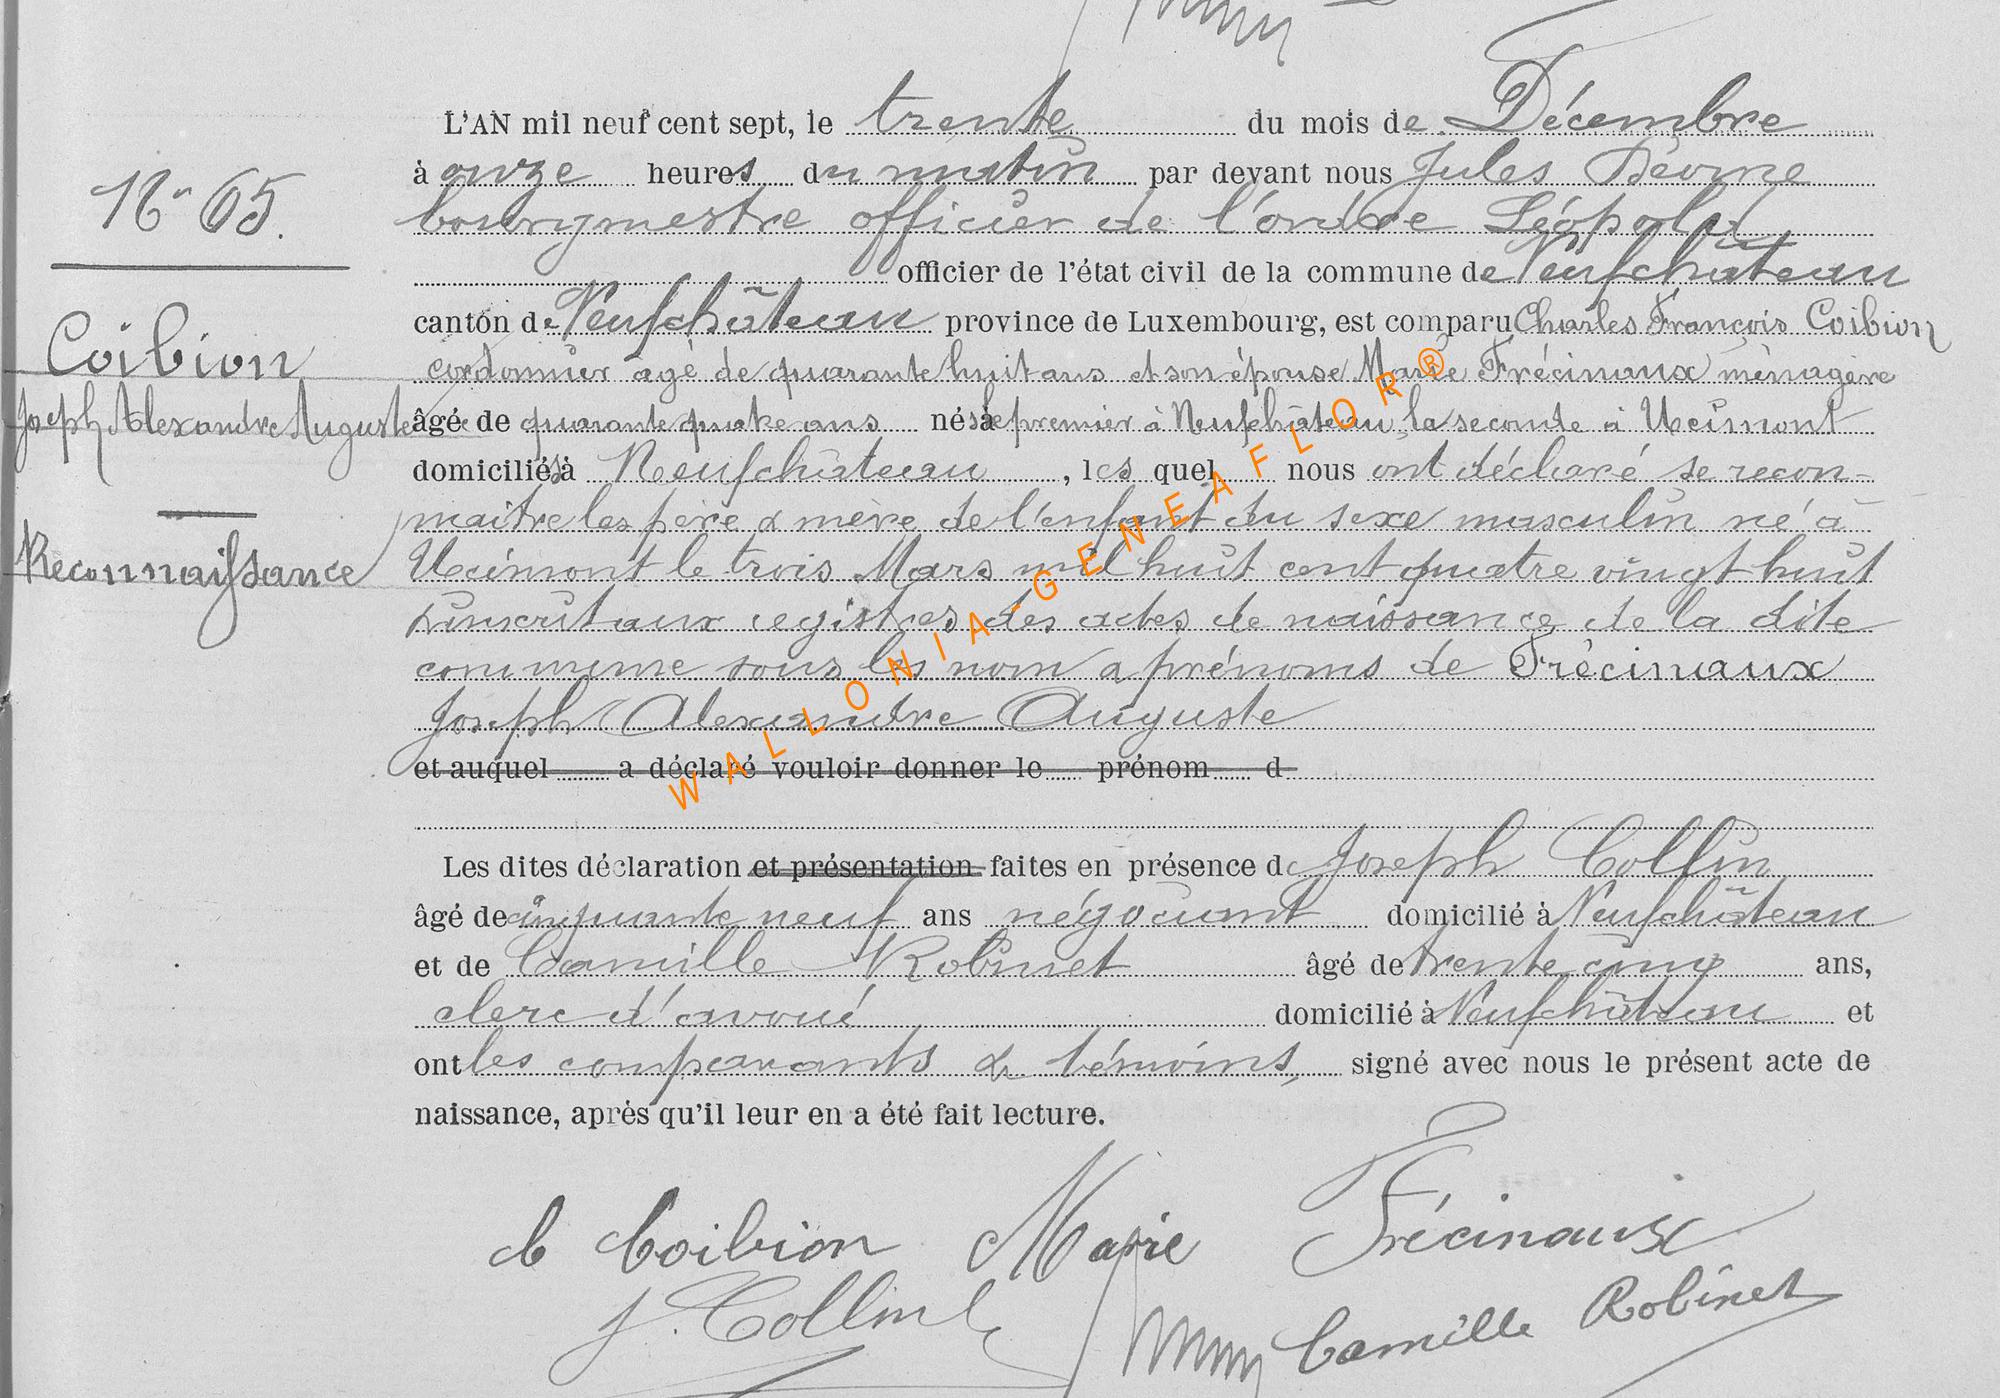 L'AN mil neuf cent sept, le trente du mois de Décembre
à onze heures du matin par devant nous Jules
bourgmestre officier de l'ordre Léopold
officier de l'état civil de la commune de Neufchâteau
canton de Neufchâteau province de Luxembourg, est comparu Charles François Coibion
cordonnier agé de quarante huit ans et son épouse Marie Frécinaux ménagère
âgé de quarante quatre ans nés le premier à Neufchâteau, la seconde à Ucimont
domiciliés à Neufchâteau, les quel nous ont déclaré se recon-
naitre les père & mère de l'enfant du sexe masculin né à
Ucimont le trois Mars mil huit cent quatre vingt huit
& inscrit aux registres des actes de naissance de la dite
commune sous les nom & prénoms de Frécinaux
Joseph Alexandre Auguste
et auquel a déclaré vouloir donner le prénom d
Les dites déclaration et présentation faites en présence de Joseph Collin
âgé de cinquante neuf ans négociant domicilié à Neufchâteau
et de Camille Robinet âgé de trente cinq ans,
clerc d'avoué domicilié à Neufchâteau et
ont les comparants & témoins, signé avec nous le présent acte de
naissance, après qu'il leur en a été fait lecture.
C Coibion Marie Frécinaux
J. Collin Camille Robinet
No 65.
Coibion
Joseph Alexandre Auguste
Reconnaissance
WALLONIA-GENEAFLOR®